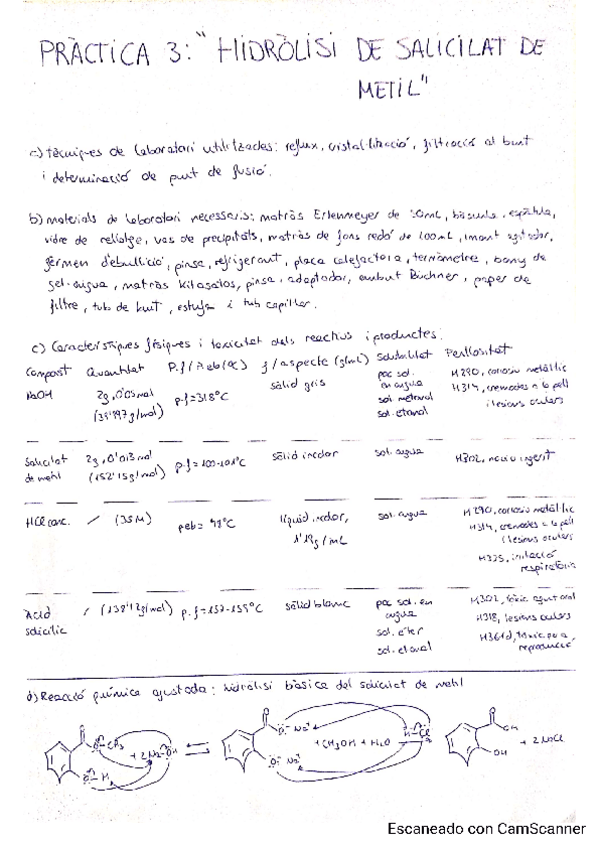 PRÀCTICA 3: "HIDRÒLISI DE SALICILAT DE
METIL"
a) tècniques de laboratori utilitzades: reflux, cristal·lització, filtració al buit
i determinació de punt de fusió.
b) materials de laboratori necessaris: matràs Erlenmeyer de 50mL, bàscula, espàtula,
vidre de rellotge, vas de precipitats, matràs de fons rodó de 100mL, imant agitador,
germen d'ebullició, pinça, refrigerant, placa calefactora, termòmetre, bany de
gel-aigua, matràs kitasatos, pinça, adaptador, embut Büchner, paper de
filtre, tub de buit, estufa i tub capil·lar.
c) Característiques físiques i toxicitat dels reactius i productes:
Compost Quantitat P.f/P.eb(ºC) ρ/aspecte (g/mL) Solubilitat Perillositat
NaOH 2g, 0'05mol p.f=318ºC sòlid gris poc sol. H290, corrosiu metàl·lic
(39'997g/mol) en aigua H314, cremades a la pell
sol. metanol i lesions oculars
sol. etanol
Salicilat 2g, 0'013mol sòlid incolor sol. aigua H302, nociu ingerit
de metil (152'15g/mol)
HCl conc. / (35M) peb= líquid incolor, sol. aigua H290, corrosiu metàl·lic
1'19g/mL H314, cremades a la pell
i lesions oculars
H335, irritació
respiratòria
Àcid / (138'12g/mol) p.f=157-159ºC sòlid blanc poc sol. en H302, tòxic agut oral
salicílic aigua H318, lesions oculars
sol. èter H361d, tòxic per a
sol. etanol reproducció
d) Reacció química ajustada: hidròlisi bàsica del salicilat de metil
O CH₃ + 2 Na OH ⇌ O⁻ Na⁺ + CH₃OH + H₂O H-Cl OH + 2 NaCl
O-H O⁻ Na⁺ OH
Escaneado con CamScanner